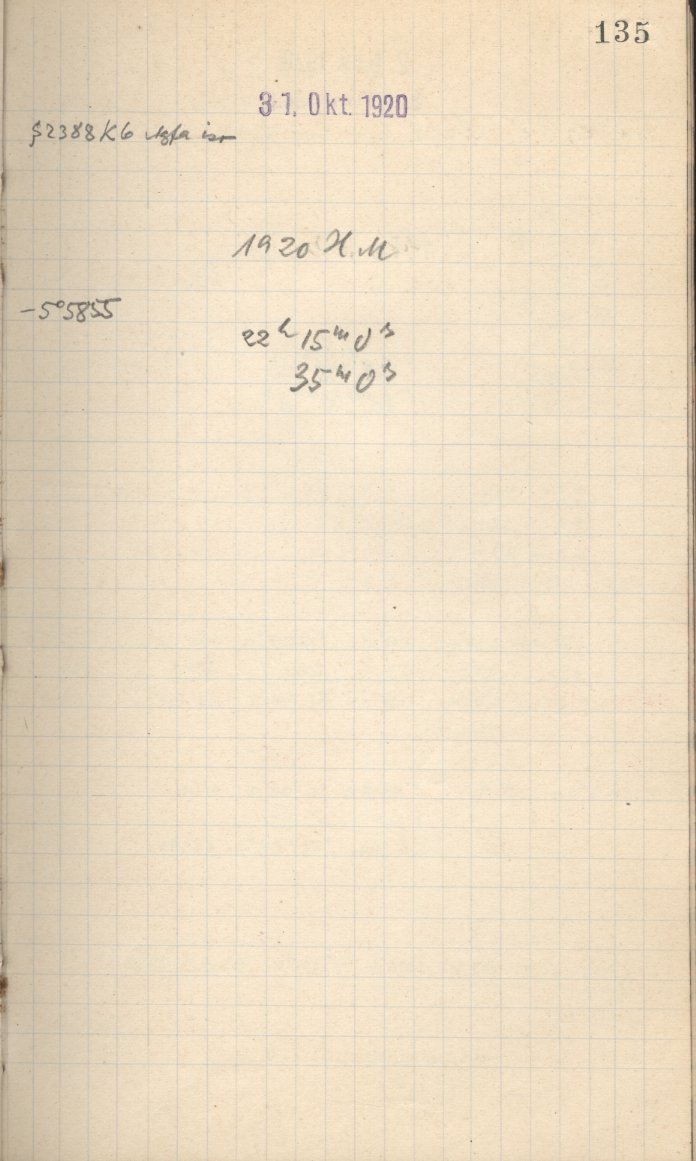 135
31. Okt. 1920
2388 K6 Agfa iso
1920 H.M
-5°5855
22ʰ 15ᵐ 0ˢ
35ᵐ 0ˢ